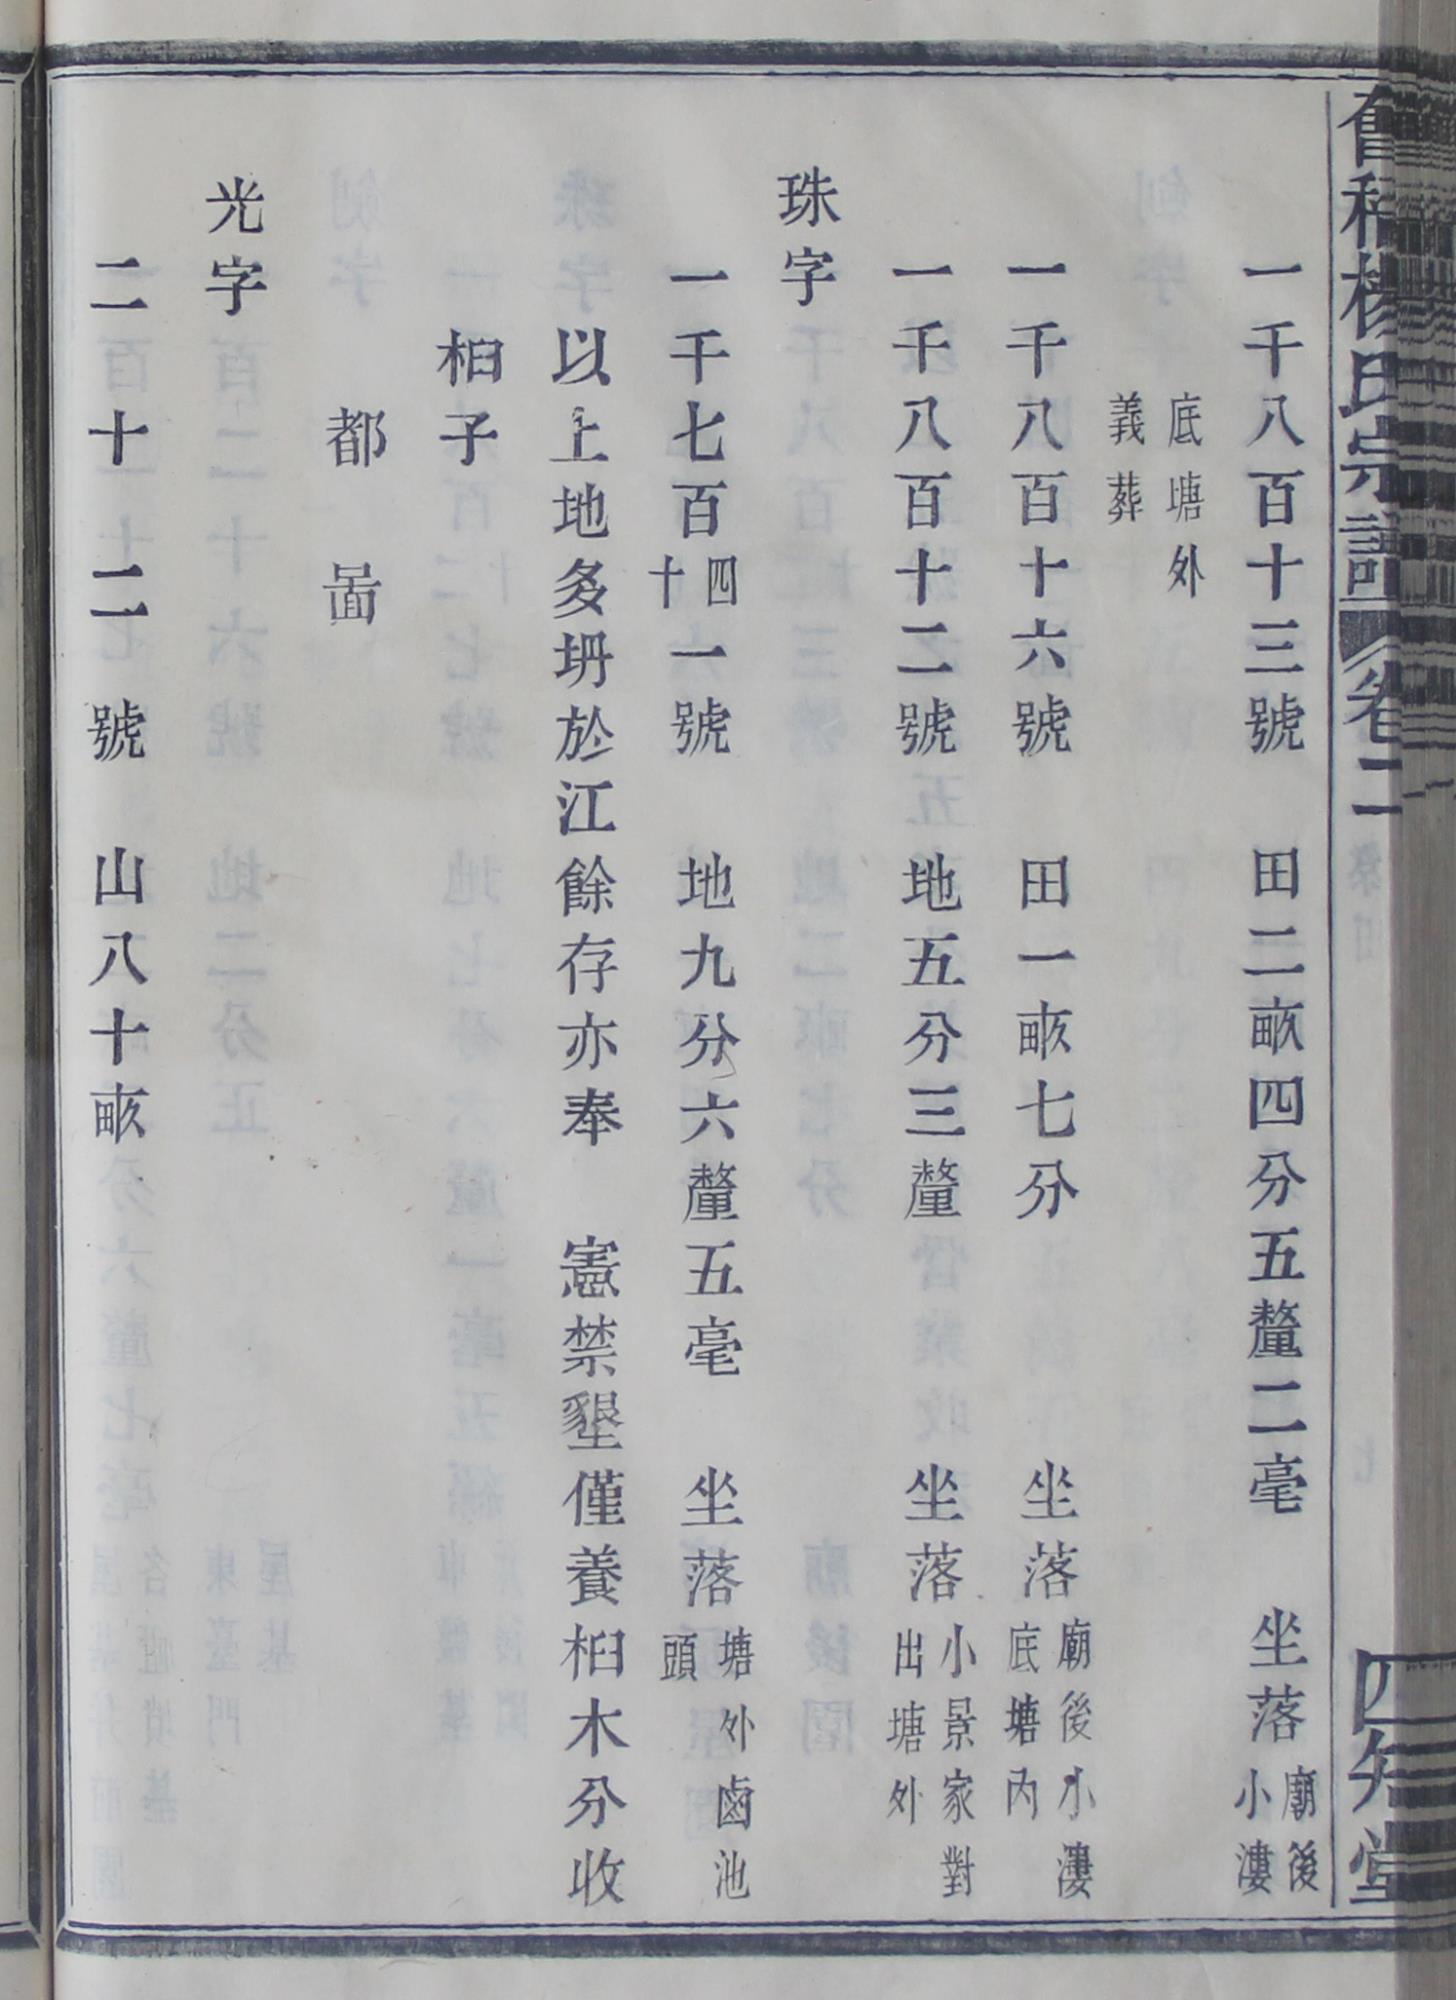 楊氏宗譜 卷二 四知堂
一千八百十三號 田二畝四分五釐二毫 坐落廟後小漊
底塘外義葬
一千八百十六號 田一畝七分 坐落廟後小漊底塘內
一千八百十二號 地五分三釐 坐落小景家對出塘外
珠字
一千七百四十一號 地九分六釐五毫 坐落塘外鹵池頭
以上地多坍於江餘存亦奉 憲禁墾僅養桕木分收
桕子
都啚
光字
二百十二號 山八十畝